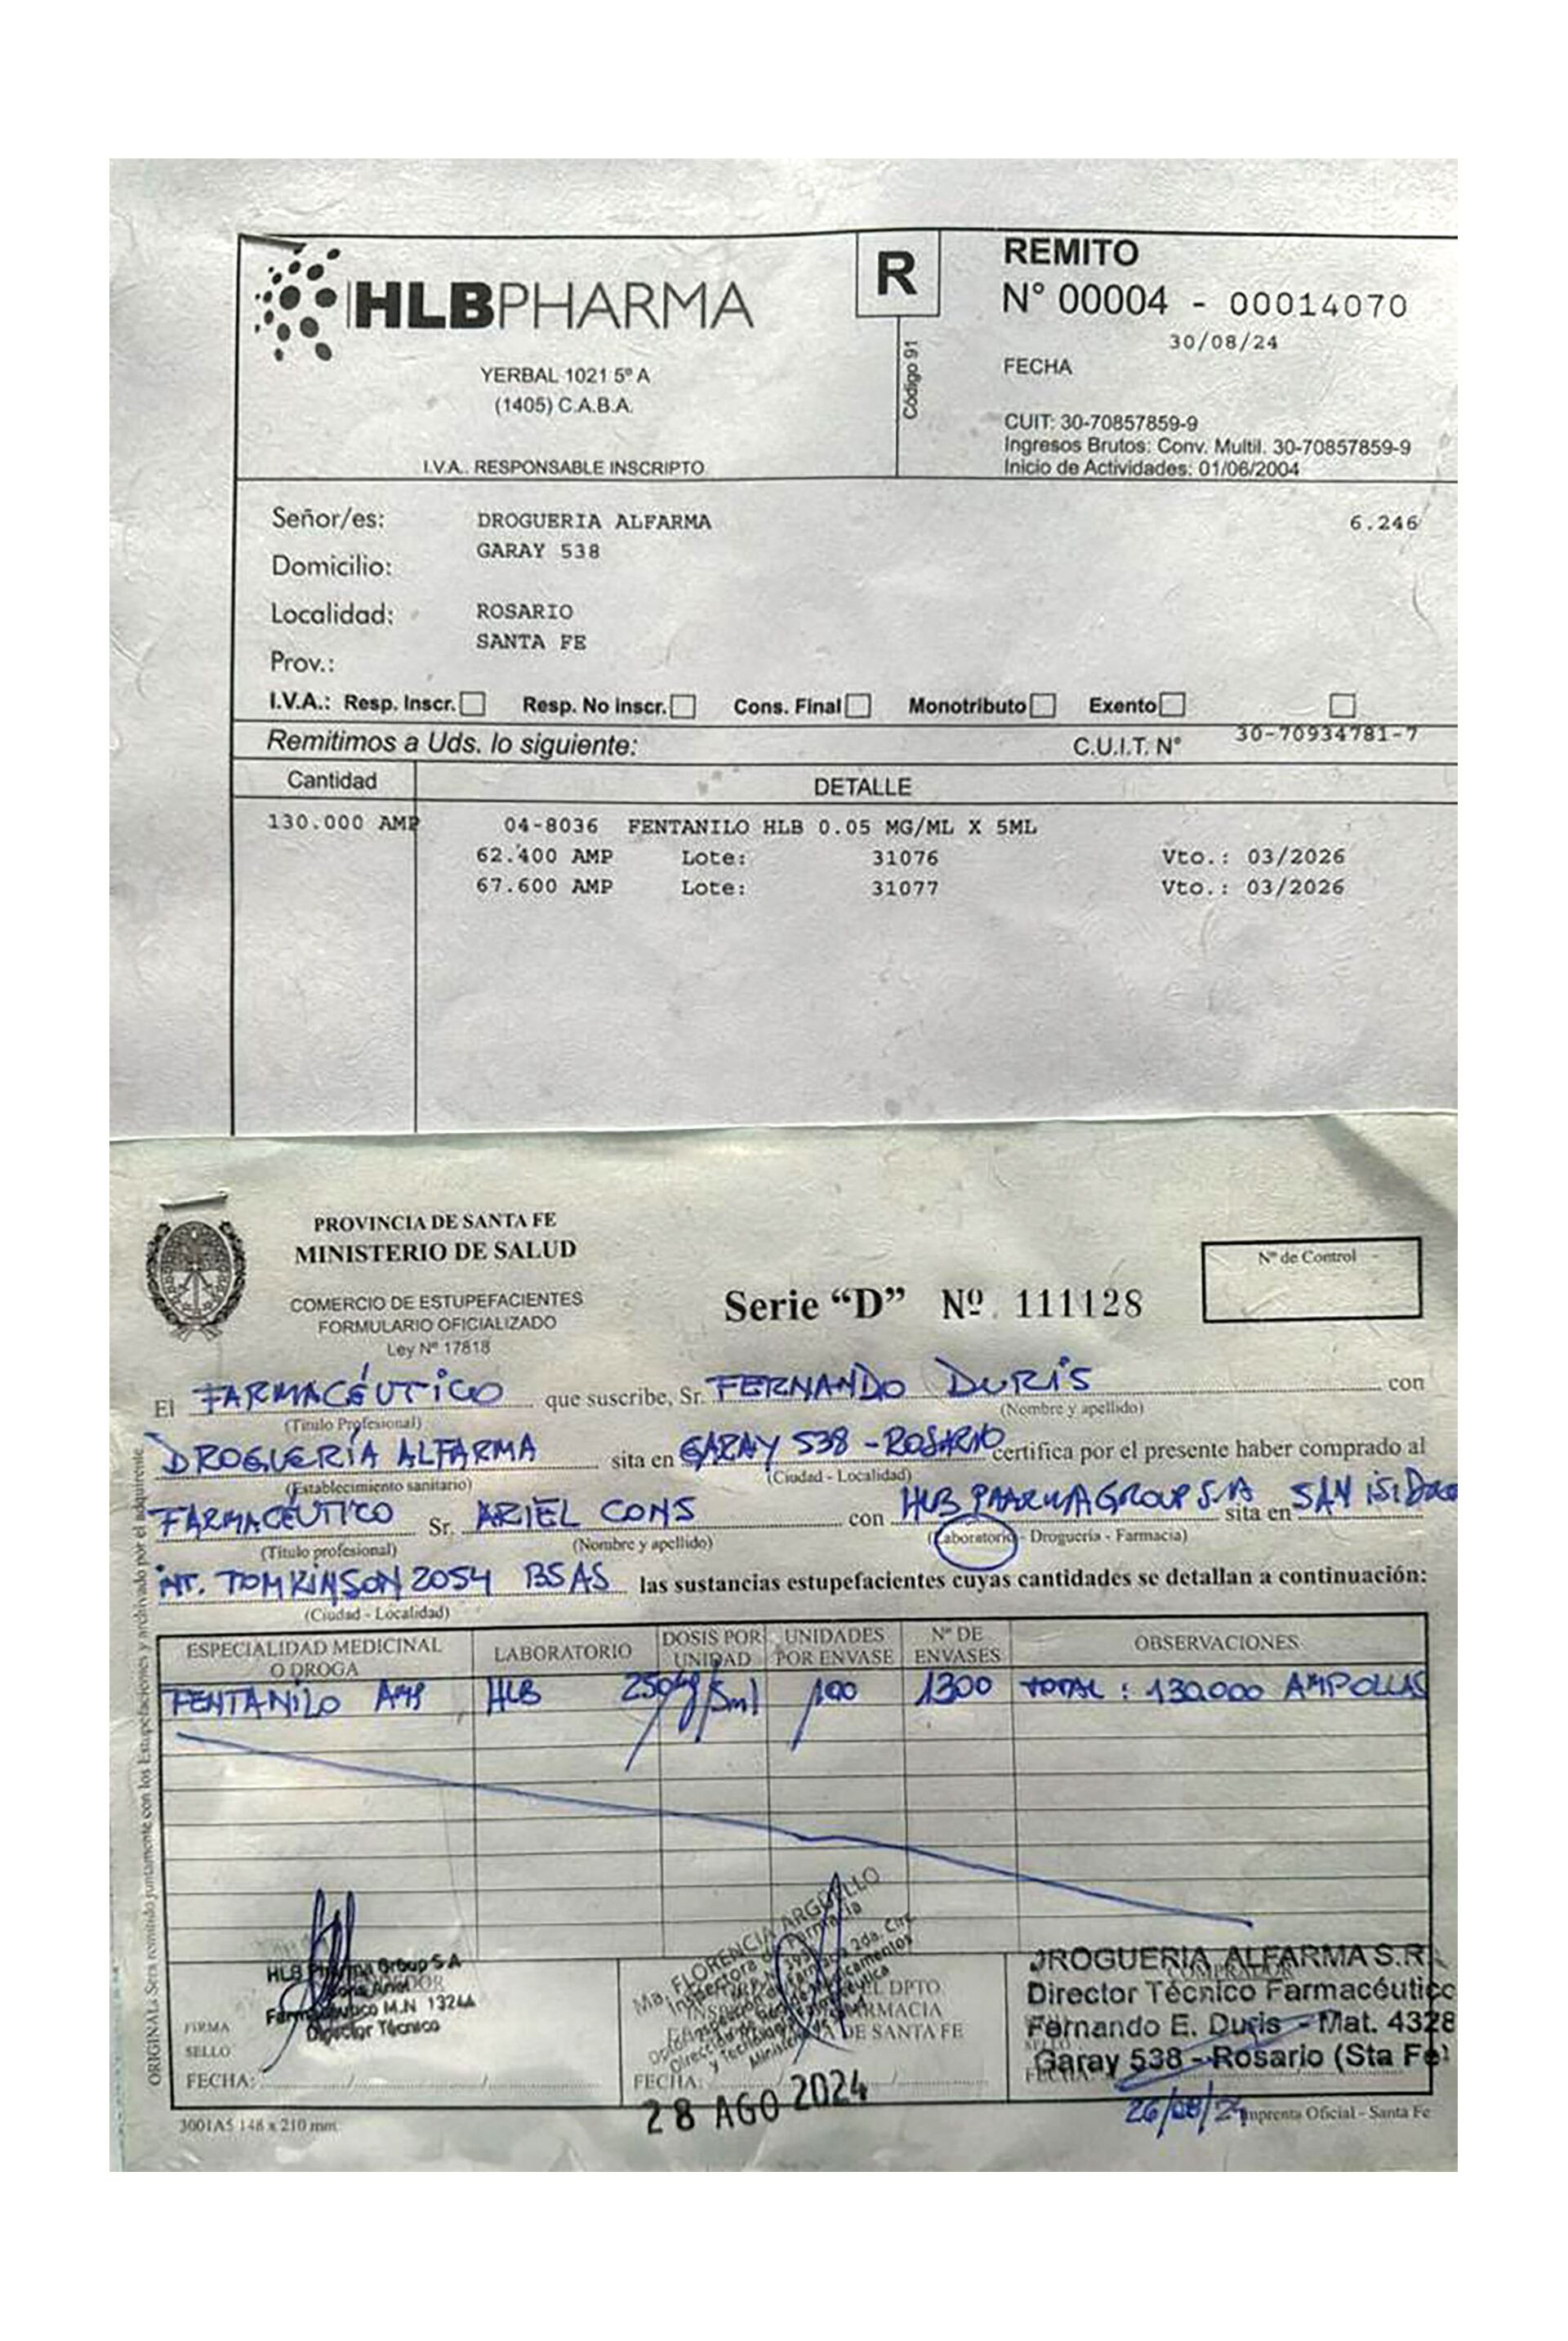 HLBPHARMA
YERBAL 1021 5º A
(1405) C.A.B.A.
I.V.A.. RESPONSABLE INSCRIPTO
R
Código 91
REMITO
N° 00004 - 00014070
30/08/24
FECHA
CUIT: 30-70857859-9
Ingresos Brutos: Conv. Multil. 30-70857859-9
Inicio de Actividades: 01/06/2004
Señor/es: DROGUERIA ALFARMA 6.246
GARAY 538
Domicilio:
Localidad: ROSARIO
SANTA FE
Prov.:
I.V.A.: Resp. Inscr. Resp. No inscr. Cons. Final Monotributo Exento
Remitimos a Uds. lo siguiente: C.U.I.T. N° 30-70934781-7
Cantidad DETALLE
130.000 AMP 04-8036 FENTANILO HLB 0.05 MG/ML X 5ML
62.400 AMP Lote: 31076 Vto.: 03/2026
67.600 AMP Lote: 31077 Vto.: 03/2026
PROVINCIA DE SANTA FE
MINISTERIO DE SALUD
COMERCIO DE ESTUPEFACIENTES
FORMULARIO OFICIALIZADO
Ley Nº 17818
Serie “D” Nº. 111128
Nº de Control
El FARMACÉUTICO que suscribe, Sr. FERNANDO DURIS con
(Titulo Profesional) (Nombre y apellido)
DROGUERÍA ALFARMA sita en GARAY 538 - ROSARIO certifica por el presente haber comprado al
(Establecimiento sanitario) (Ciudad - Localidad)
FARMACÉUTICO Sr. ARIEL CONS con HLB PHARMA GROUP S.A sita en SAN ISIDRO
(Título profesional) (Nombre y apellido) (Laboratorio - Droguería - Farmacia)
INT. TOMKINSON 2054 BSAS las sustancias estupefacientes cuyas cantidades se detallan a continuación:
(Ciudad - Localidad)
ESPECIALIDAD MEDICINAL O DROGA LABORATORIO DOSIS POR UNIDAD UNIDADES POR ENVASE Nº DE ENVASES OBSERVACIONES
FENTANILO AMP HLB 250µg/5ml 100 1300 TOTAL : 130.000 AMPOLLAS
ORIGINAL: Será remitido juntamente con los Estupefacientes y archivado por el adquirente.
HLB Pharma Group S.A
Cons Ariel
Farmacéutico M.N 13244
Director Técnico
FIRMA
SELLO
FECHA:
Ma. FLORENCIA ARGÜELLO
Inspectora de Farmacia
Ministerio de Salud
DPTO
FARMACIA
DE SANTA FE
FECHA:
28 AGO 2024
DROGUERIA ALFARMA S.R.
COMPRADOR
Director Técnico Farmacéutico
Fernando E. Duris - Mat. 4328
Garay 538 - Rosario (Sta Fe)
FECHA:
26/08/24
3001A5 148 x 210 mm. Imprenta Oficial - Santa Fe